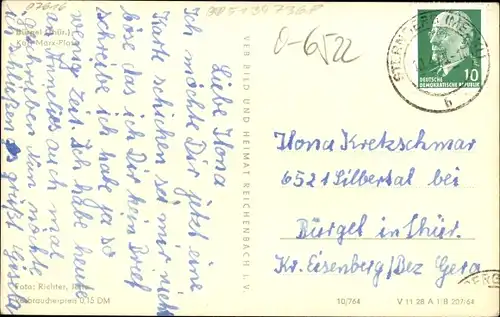 07616
005139736P
0-6522
Bürgel (Thür.)
Karl-Marx-Platz
Liebe Ilona
Ich möchte Dir jetzt eine
Karte schicken sei mir nicht
böse das ich Dir kein Brief
schreibe ich habe ja so
wenig Zeit. Ich habe heute
an Annlies auch mal
geschrieben Nun möchte
ich schließen es grüßt Gisela
Foto: Richter,
Verbraucherpreis 0,15 DM
VEB BILD UND HEIMAT REICHENBACH i. V.
10
DEUTSCHE
DEMOKRATISCHE REPUBLIK
b
Ilona Kretzschmar
6521 Silbertal bei
Bürgel in Thür.
Kr. Eisenberg/Bez Gera
10/764
V 11 28 A 1/B 207/64